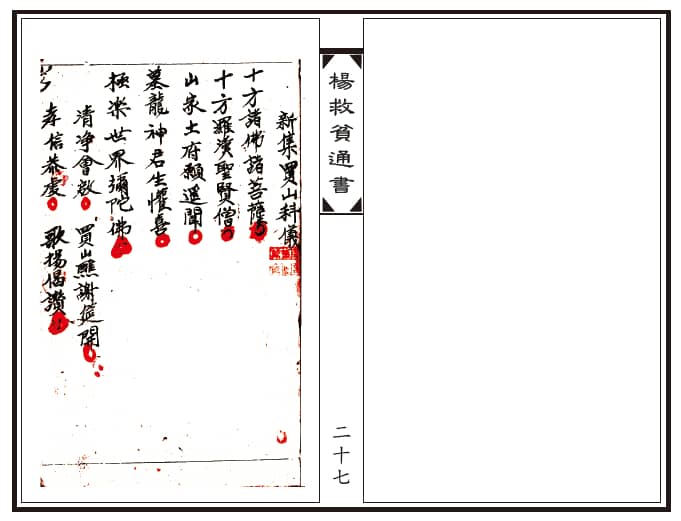 楊救貧通書
二十七
新集買山科儀
十方諸佛諸菩薩
十方羅漢聖賢僧
山家土府願遥聞
墓龍神君生懽喜
極樂世界彌陀佛
清净會啟 買山醮謝筵開
孝信恭虔 歌揚偈讚